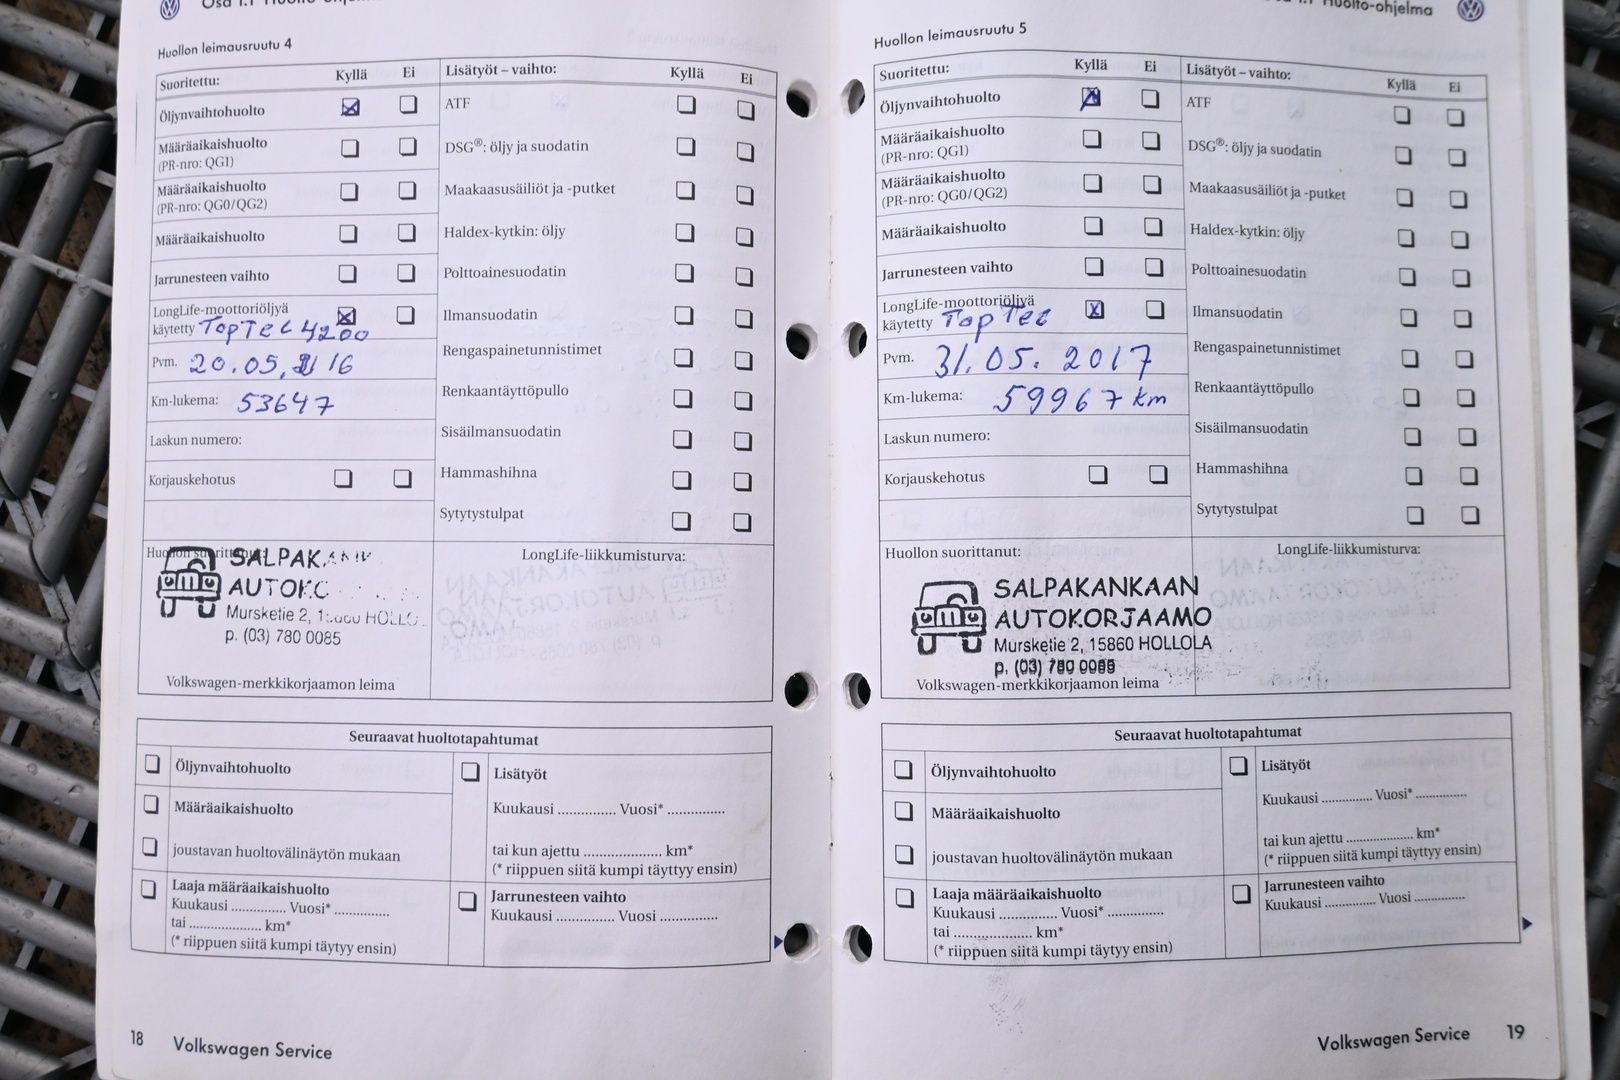 Osa 1.1 Huolto-ohjelma
Huollon leimausruutu 4
Suoritettu: Kyllä Ei
Öljynvaihtohuolto
Määräaikaishuolto
(PR-nro: QG1)
Määräaikaishuolto
(PR-nro: QG0/QG2)
Määräaikaishuolto
Jarrunesteen vaihto
LongLife-moottoriöljyä
käytetty TopTec 4200
Pvm. 20.05. 16
Km-lukema: 53647
Laskun numero:
Korjauskehotus
Lisätyöt – vaihto: Kyllä Ei
ATF
DSG®: öljy ja suodatin
Maakaasusäiliöt ja -putket
Haldex-kytkin: öljy
Polttoainesuodatin
Ilmansuodatin
Rengaspainetunnistimet
Renkaantäyttöpullo
Sisäilmansuodatin
Hammashihna
Sytytystulpat
Huollon suorittanut:
SALPAK
AUTOKO
Mursketie 2, HOLLO
p. (03) 780 0085
Volkswagen-merkkikorjaamon leima
LongLife-liikkumisturva:
Seuraavat huoltotapahtumat
Öljynvaihtohuolto
Määräaikaishuolto
joustavan huoltovälinäytön mukaan
Laaja määräaikaishuolto
Kuukausi ............... Vuosi* ...............
tai .................... km*
(* riippuen siitä kumpi täytyy ensin)
Lisätyöt
Kuukausi ............... Vuosi* ...............
tai kun ajettu ..................... km*
(* riippuen siitä kumpi täyttyy ensin)
Jarrunesteen vaihto
Kuukausi ............... Vuosi ...............
18 Volkswagen Service
Huolto-ohjelma
Huollon leimausruutu 5
Suoritettu: Kyllä Ei
Öljynvaihtohuolto
Määräaikaishuolto
(PR-nro: QG1)
Määräaikaishuolto
(PR-nro: QG0/QG2)
Määräaikaishuolto
Jarrunesteen vaihto
LongLife-moottoriöljyä
käytetty TopTec
Pvm. 31.05.2017
Km-lukema: 59967 km
Laskun numero:
Korjauskehotus
Lisätyöt – vaihto: Kyllä Ei
ATF
DSG®: öljy ja suodatin
Maakaasusäiliöt ja -putket
Haldex-kytkin: öljy
Polttoainesuodatin
Ilmansuodatin
Rengaspainetunnistimet
Renkaantäyttöpullo
Sisäilmansuodatin
Hammashihna
Sytytystulpat
Huollon suorittanut:
SALPAKANKAAN
AUTOKORJAAMO
Mursketie 2, 15860 HOLLOLA
p. (03) 780 0085
Volkswagen-merkkikorjaamon leima
LongLife-liikkumisturva:
Seuraavat huoltotapahtumat
Öljynvaihtohuolto
Määräaikaishuolto
joustavan huoltovälinäytön mukaan
Laaja määräaikaishuolto
Kuukausi ............... Vuosi* ...............
tai .................... km*
(* riippuen siitä kumpi täytyy ensin)
Lisätyöt
Kuukausi ............... Vuosi* ...............
tai kun ajettu .................... km*
(* riippuen siitä kumpi täyttyy ensin)
Jarrunesteen vaihto
Kuukausi ............... Vuosi ...............
Volkswagen Service 19